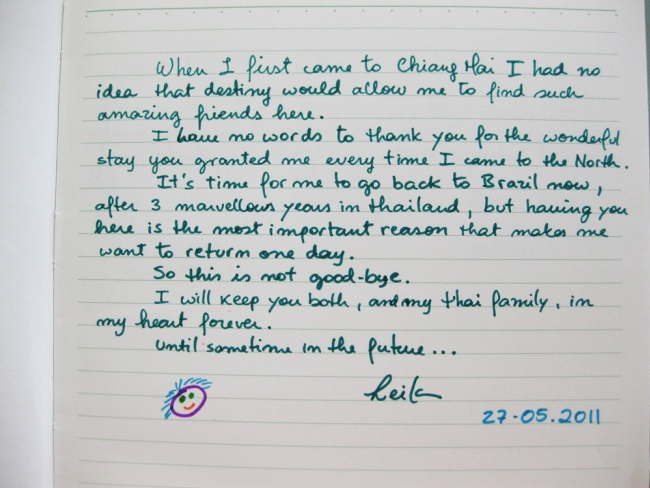 When I first came to Chiang Mai I had no
idea that destiny would allow me to find such
amazing friends here.
I have no words to thank you for the wonderful
stay you granted me every time I came to the North.
It's time for me to go back to Brazil now,
after 3 marvellous years in thailand, but having you
here is the most important reason that makes me
want to return one day.
So this is not good-bye.
I will keep you both, and my thai family, in
my heart forever.
Until sometime in the future...
Leila
27-05.2011